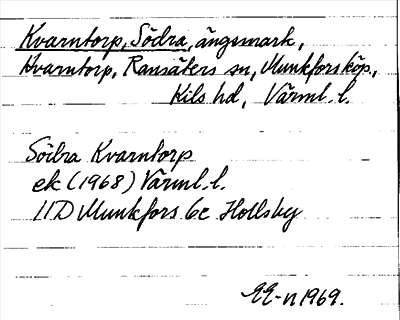 Kvarntorp, Södra, ängsmark,
Kvarntorp, Ransäters sn, Munkfors köp.,
Kils hd, Värml. l.
Södra Kvarntorp
ek (1968) Värml. l.
11D Munkfors 6c Hollsby
EE-n 1969.